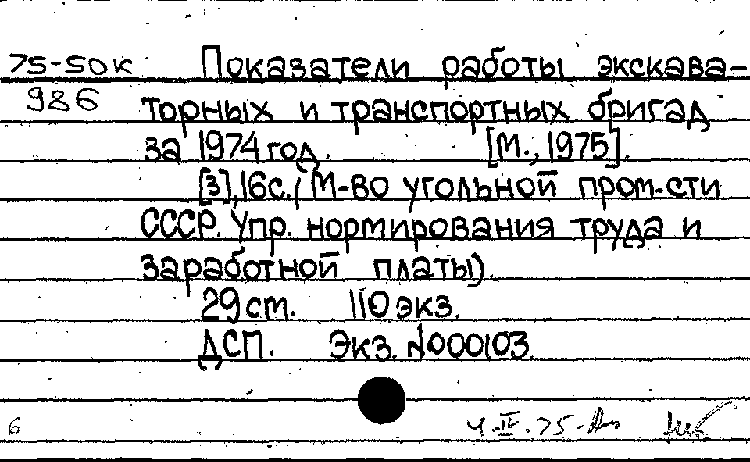 75-50к Показатели работы экскава-
986 торных и транспортных бригад
за 1974 год. [М., 1975].
[3], 16с. (М-во угольной пром-сти
СССР. Упр. нормирования труда и
заработной платы)
29 ст. 110 экз.
ДСП. Экз. №000103.
6 4.IV.75